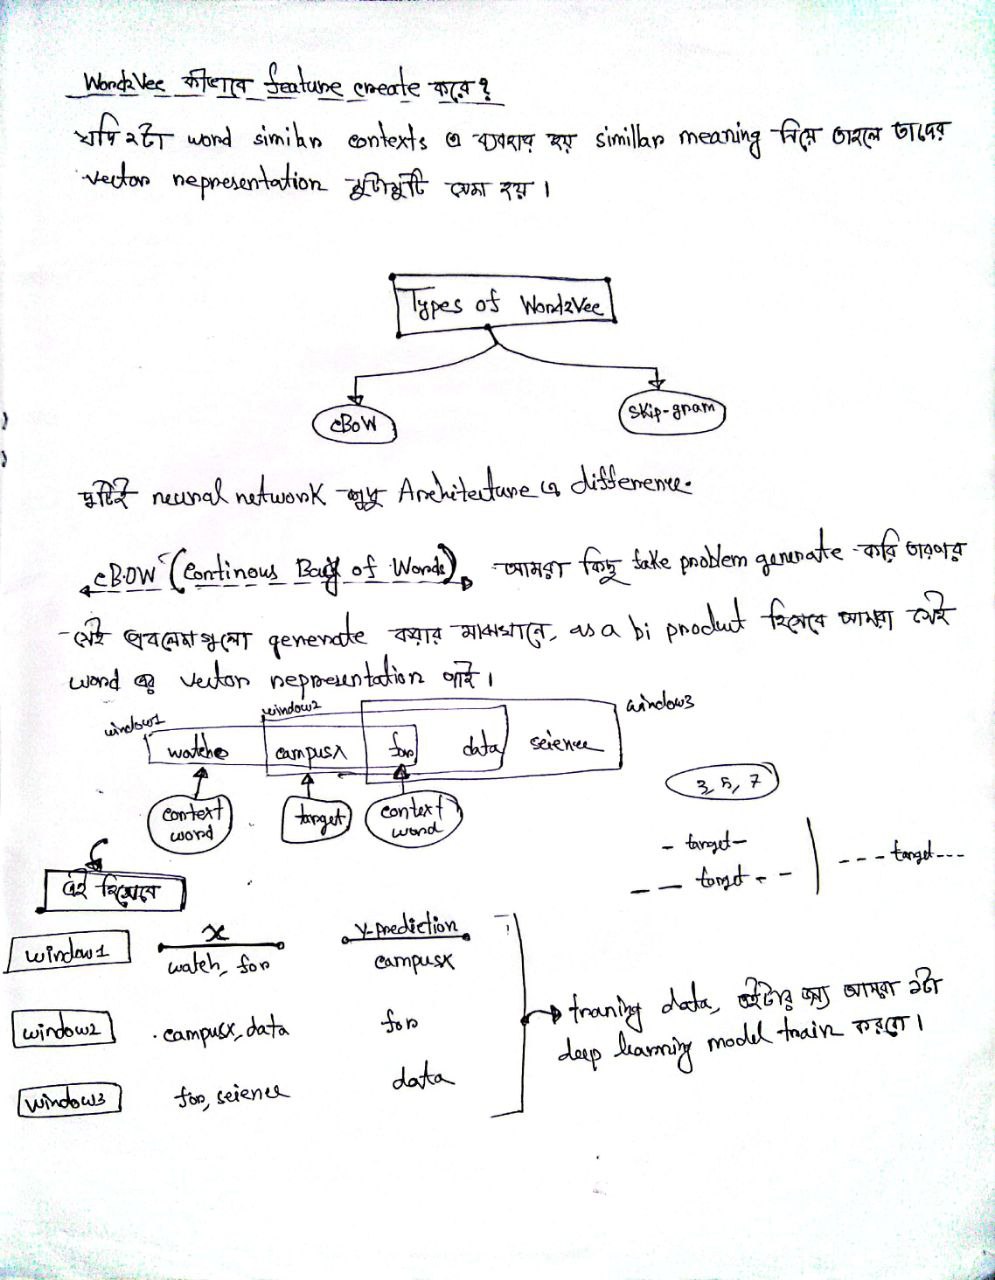 Word2Vec কীভাবে feature create করে?
যদি ২টা word similar contexts এ ব্যবহার হয় simillar meaning নিয়ে তাহলে তাদের
vector representation মুটামুটি সেম হয়।
Types of Word2Vec
CBOW
Skip-gram
দুটিই neural network শুধু Architecture এ difference.
CBOW (Continous Bag of Words) আমরা কিছু fake problem generate করি তারপর
সেই প্রবলেমগুলো generate করার মাঝখানে, as a bi product হিসেবে আমরা সেই
word এর vector representation পাই।
window1 window2 window3
watch campusx for data science
3, 5, 7
context word target context word
- target -
- - - target - - -
- - target - -
এই হিসেবে
x Y-prediction
window1 watch, for campusx
window2 campusx, data for
window3 for, science data
traning data, এইটার জন্য আমরা ১টা
deep learning model train করবো।